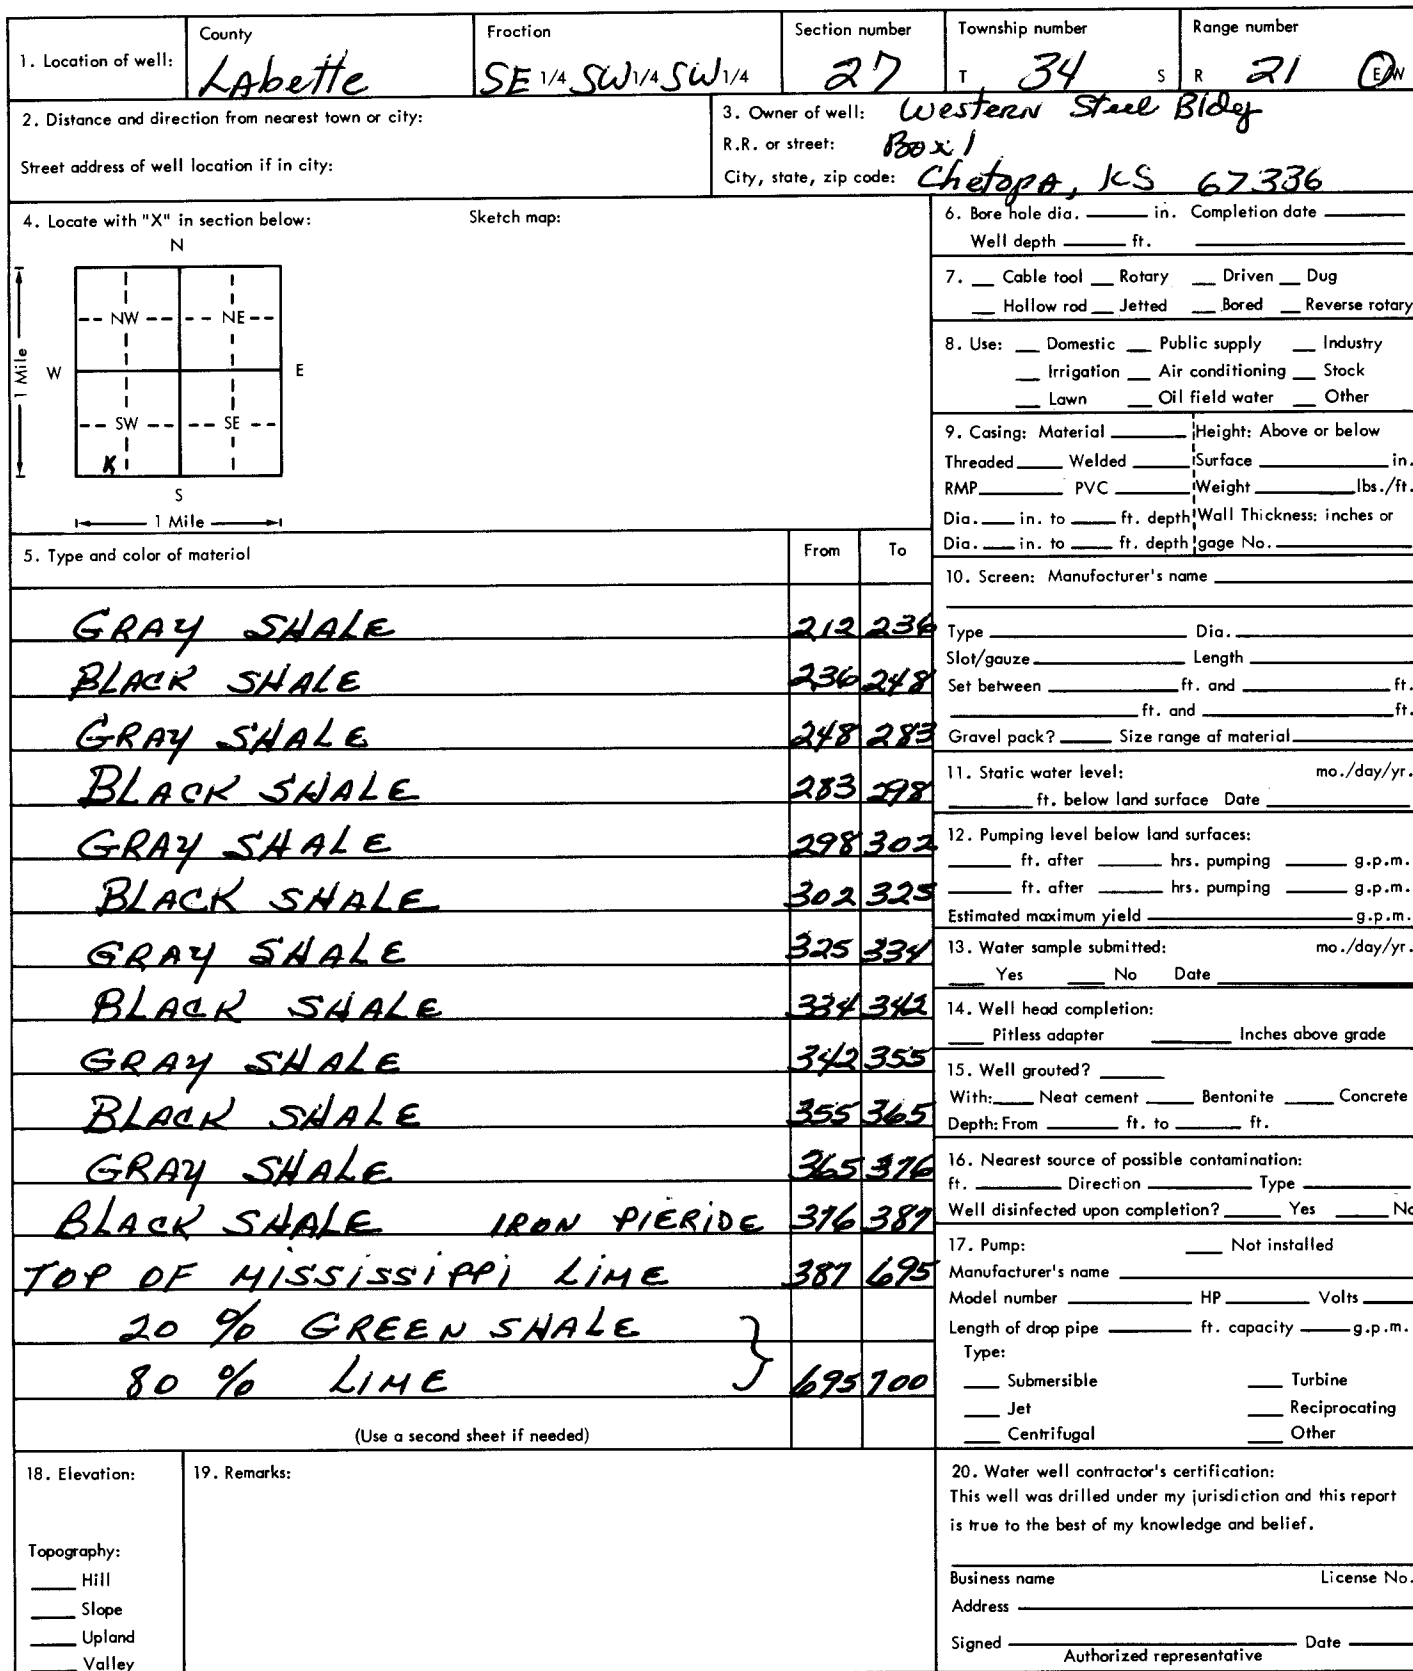 1. Location of well:
County
LAbette
Froction
SE 1/4 SW 1/4 SW 1/4
Section number
27
Township number
T 34 S
Range number
R 21 E/W
2. Distance and direction from nearest town or city:
Street address of well location if in city:
3. Owner of well: Western Steel Bldg
R.R. or street: Box 1
City, state, zip code: Chetopa, KS 67336
4. Locate with "X" in section below:
Sketch map:
N
NW NE
W E
1 Mile
SW SE
X
S
1 Mile
5. Type and color of material From To
GRAY SHALE 212 236
BLACK SHALE 236 248
GRAY SHALE 248 283
BLACK SHALE 283 298
GRAY SHALE 298 302
BLACK SHALE 302 325
GRAY SHALE 325 334
BLACK SHALE 334 342
GRAY SHALE 342 355
BLACK SHALE 355 365
GRAY SHALE 365 376
BLACK SHALE IRON PIERIDE 376 387
TOP OF MISSISSIPPI LIME 387 695
20 % GREEN SHALE
80 % LIME 695 700
(Use a second sheet if needed)
6. Bore hole dia. in. Completion date
Well depth ft.
7. Cable tool Rotary Driven Dug
Hollow rod Jetted Bored Reverse rotary
8. Use: Domestic Public supply Industry
Irrigation Air conditioning Stock
Lawn Oil field water Other
9. Casing: Material Height: Above or below
Threaded Welded Surface in.
RMP PVC Weight lbs./ft.
Dia. in. to ft. depth Wall Thickness: inches or
Dia. in. to ft. depth gage No.
10. Screen: Manufocturer's name
Type Dia.
Slot/gauze Length
Set between ft. and ft.
ft. and ft.
Gravel pack? Size range af material
11. Static water level: mo./day/yr.
ft. below land surface Date
12. Pumping level below land surfaces:
ft. after hrs. pumping g.p.m.
ft. after hrs. pumping g.p.m.
Estimated maximum yield g.p.m.
13. Water sample submitted: mo./day/yr.
Yes No Date
14. Well head completion:
Pitless adapter Inches above grade
15. Well grouted?
With: Neat cement Bentonite Concrete
Depth: From ft. to ft.
16. Nearest source of possible contamination:
ft. Direction Type
Well disinfected upon completion? Yes No
17. Pump: Not installed
Manufacturer's name
Model number HP Volts
Length of drop pipe ft. capacity g.p.m.
Type:
Submersible Turbine
Jet Reciprocating
Centrifugal Other
18. Elevation:
Topography:
Hill
Slope
Upland
Valley
19. Remarks:
20. Water well contractor's certification:
This well was drilled under my jurisdiction and this report
is true to the best of my knowledge and belief.
Business name License No.
Address
Signed Date
Authorized representative